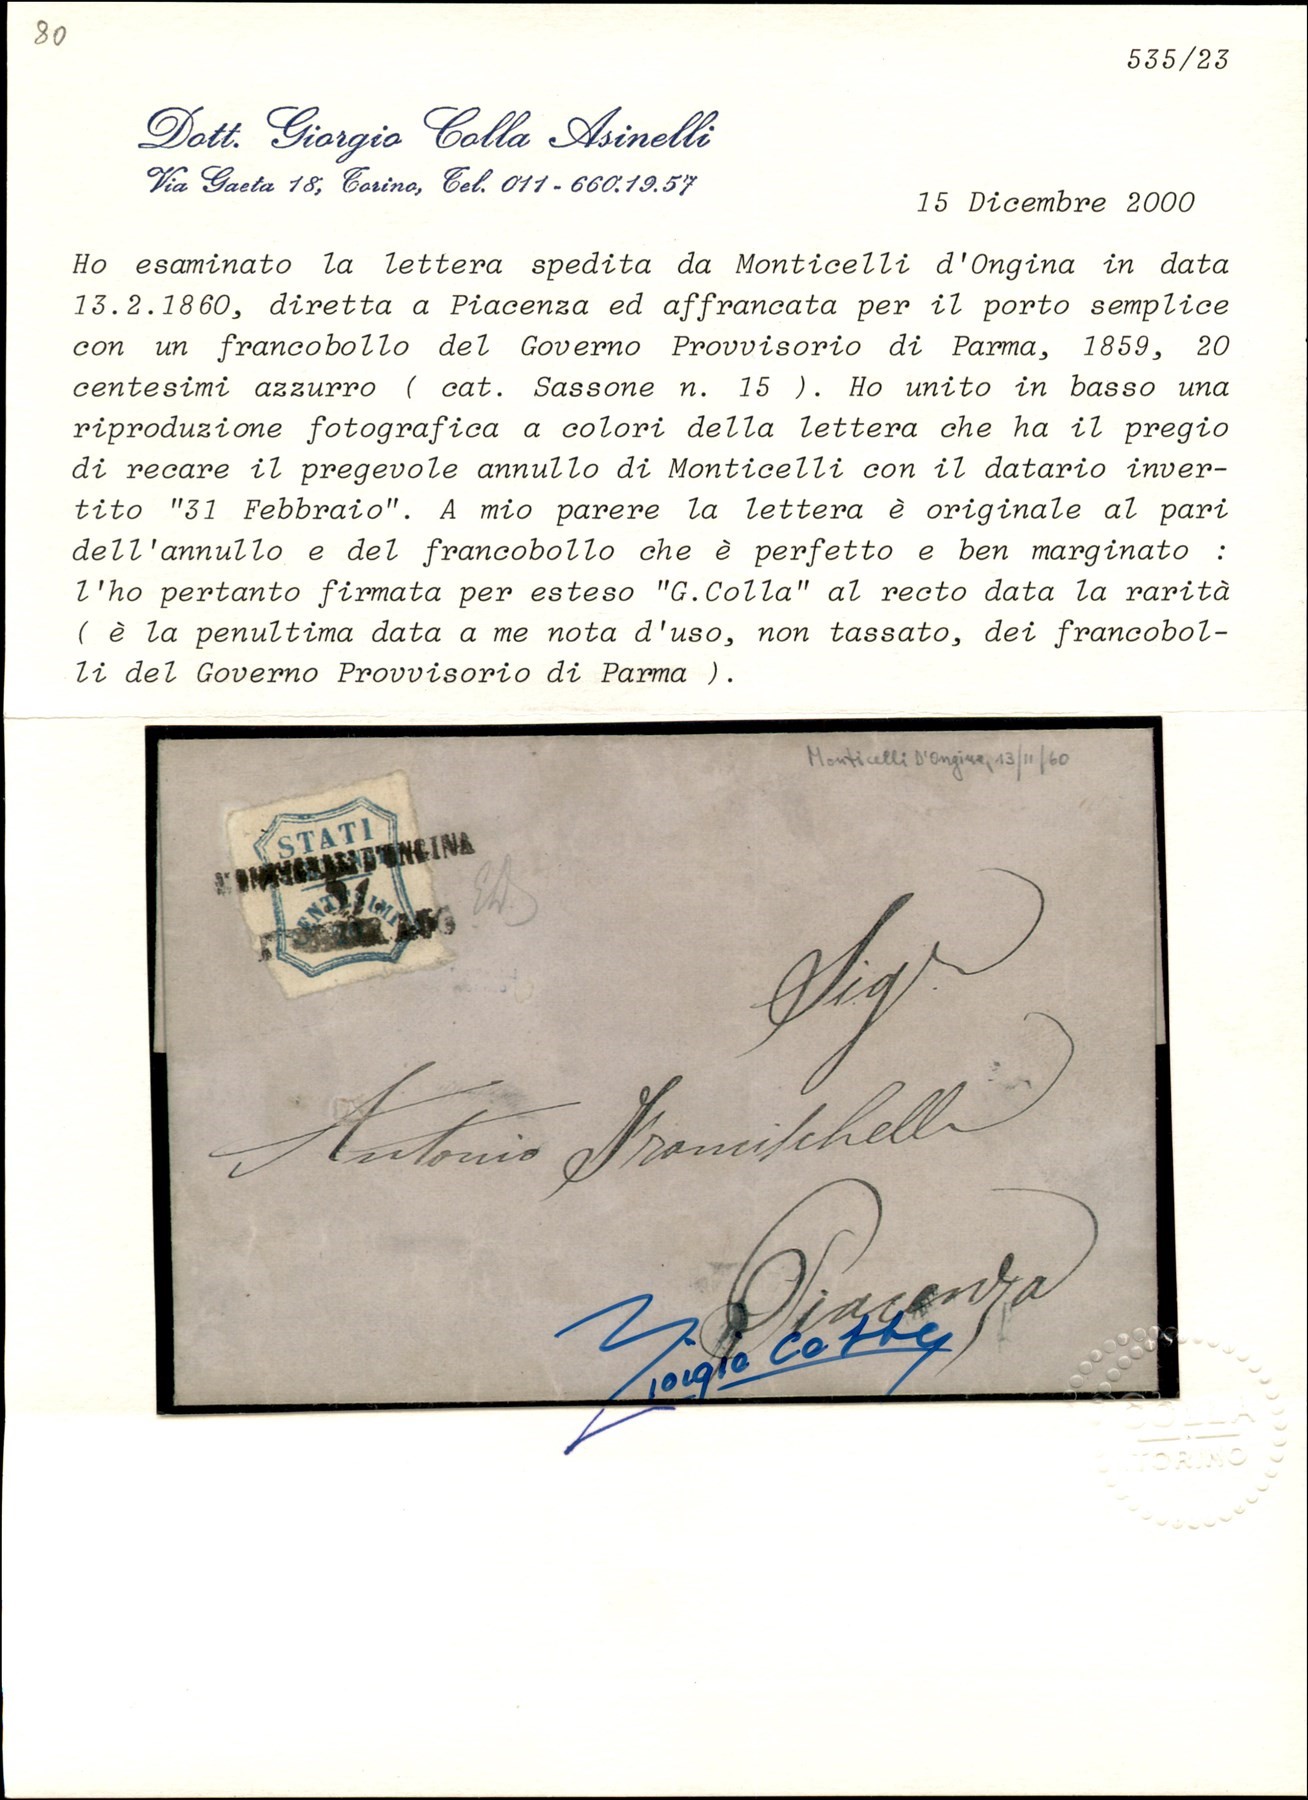 80
535/23
Dott. Giorgio Colla Asinelli
Via Gaeta 18, Torino, Tel. 011-660.19.57
15 Dicembre 2000
Ho esaminato la lettera spedita da Monticelli d'Ongina in data
13.2.1860, diretta a Piacenza ed affrancata per il porto semplice
con un francobollo del Governo Provvisorio di Parma, 1859, 20
centesimi azzurro ( cat. Sassone n. 15 ). Ho unito in basso una
riproduzione fotografica a colori della lettera che ha il pregio
di recare il pregevole annullo di Monticelli con il datario inver-
tito "31 Febbraio". A mio parere la lettera è originale al pari
dell'annullo e del francobollo che è perfetto e ben marginato :
l'ho pertanto firmata per esteso "G.Colla" al recto data la rarità
( è la penultima data a me nota d'uso, non tassato, dei francobol-
li del Governo Provvisorio di Parma ).
Monticelli D'Ongina, 13/II/60
STATI
D'ONGINA
Sigr
Antonio
Piacenza
Giorgio Colla
COLLA
TORINO